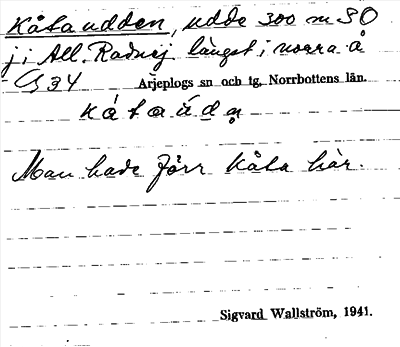 Kåtaudden, udde 300 m SO
j i All. Radnej längst i norra å
G 34 Arjeplogs sn och tg, Norrbottens län.
kåtaúdn̥
Man hade förr kåta här.
Sigvard Wallström, 1941.